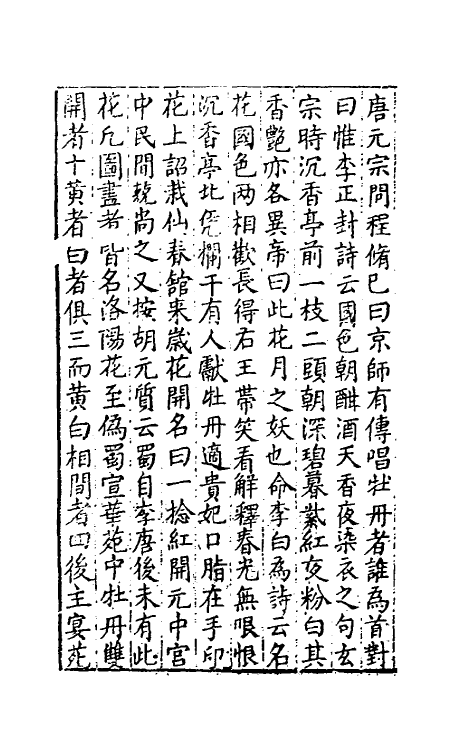 唐元宗問程脩己曰京師有傳唱牡丹者誰為首對
曰惟李正封詩云國色朝酣酒天香夜染衣之句玄
宗時沉香亭前一枝二頭朝深碧暮紫紅夜粉白其
香艷亦各異帝曰此花月之妖也命李白為詩云名
花國色两相歡長得右王帶笑看解釋春光無限恨
沉香亭北凭欄干有人獻牡丹適貴妃口脂在手印
花上詔栽仙春舘来歲花開名曰一捻紅開元中宮
中民間競尚之又按胡元質云蜀自李唐後未有此
花凢圖畫者皆名洛陽花至偽蜀宣華苑中牡丹雙
開者十黃者曰者俱三而黄白相間者四後主宴苑